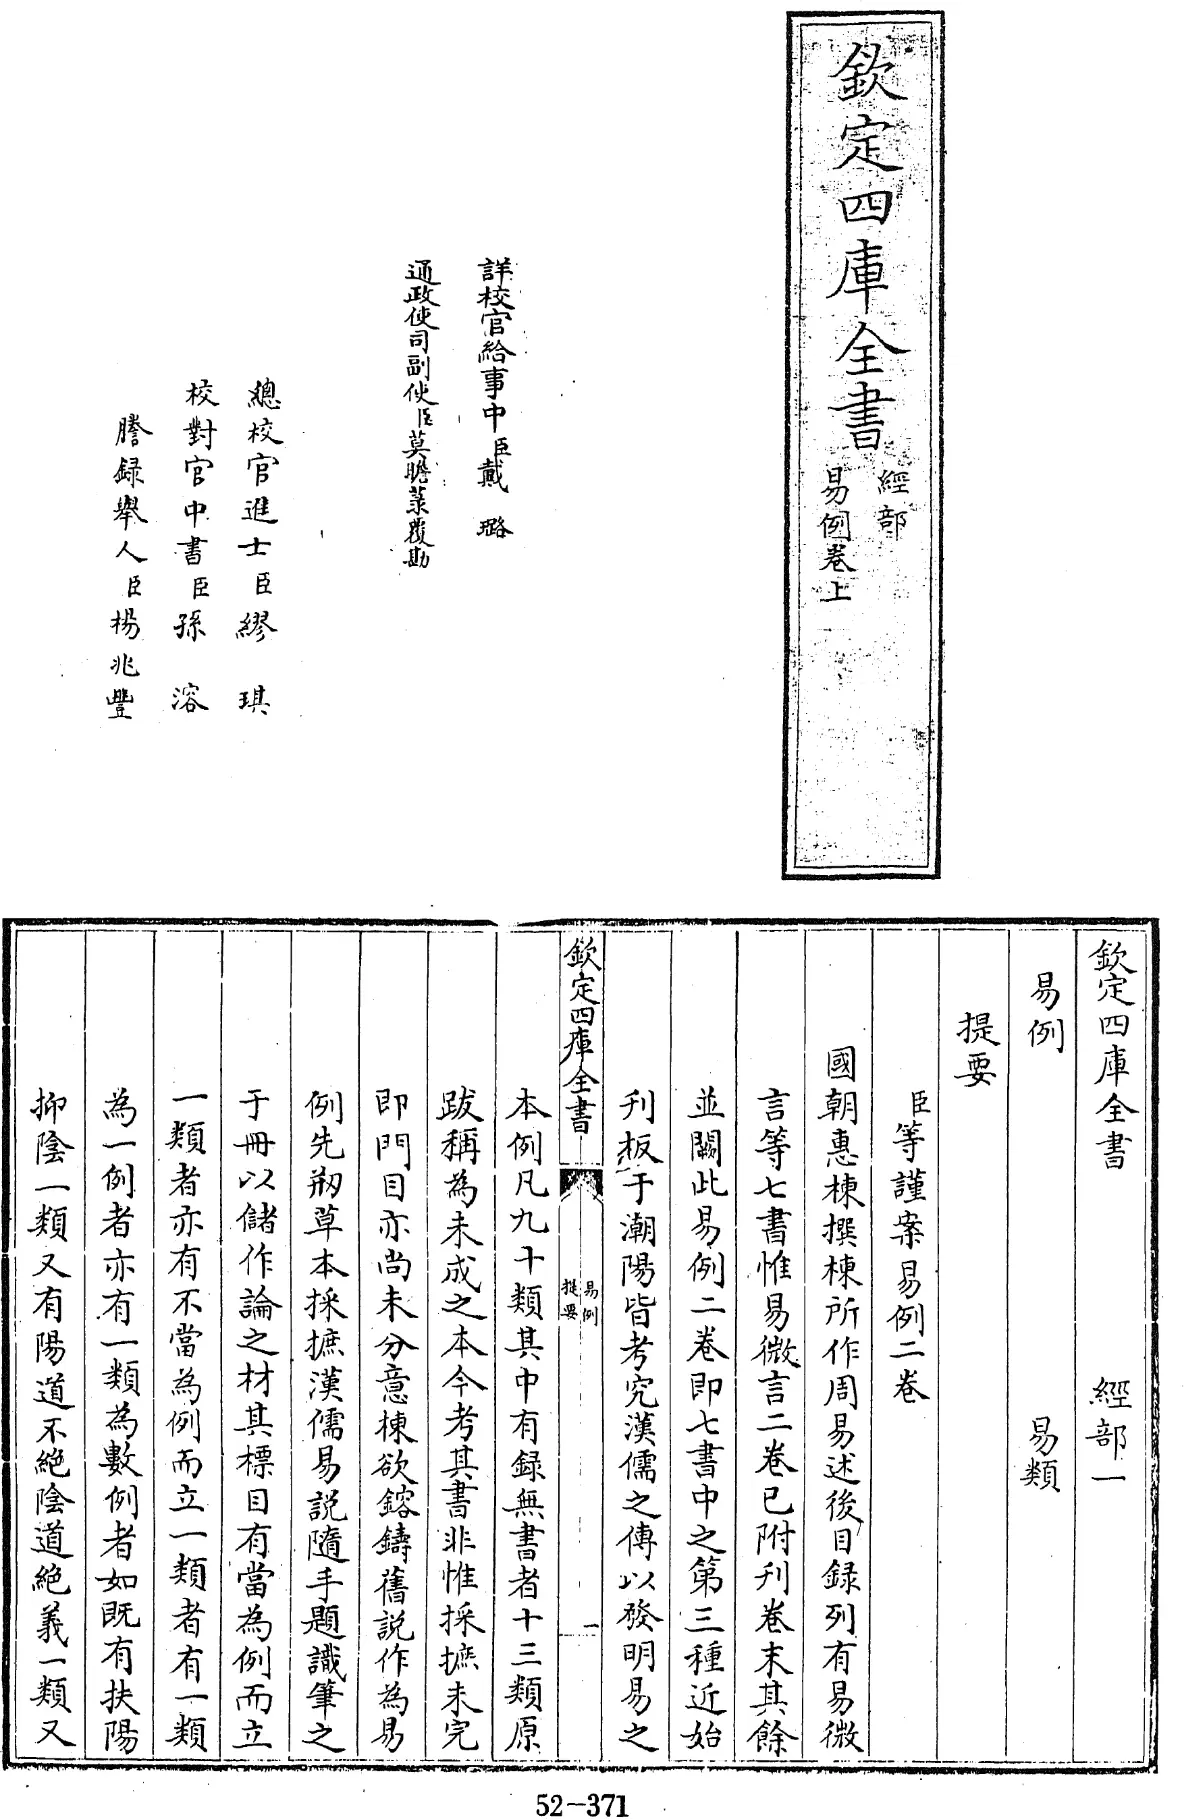 欽定四庫全書
經部
易例卷上
詳校官給事中臣戴璐
通政使司副使臣莫瞻菉覆勘
總校官進士臣繆琪
校對官中書臣孫溶
謄録舉人臣楊兆豐
欽定四庫全書 經部一
易例 易類
提要
臣等謹案易例二卷
國朝惠棟撰棟所作周易述後目録列有易微
言等七書惟易微言二卷已附刋卷末其餘
並闕此易例二卷即七書中之第三種近始
刋板于潮陽皆考究漢儒之傳以發明易之
欽定四庫全書
易例
提要
一
本例凡九十類其中有録無書者十三類原
跋稱為未成之本今考其書非惟採摭未完
即門目亦尚未分意棟欲鎔鑄舊說作為易
例先剏草本採摭漢儒易說隨手題識筆之
于冊以儲作論之材其標目有當為例而立
一類者亦有不當為例而立一類者有一類
為一例者亦有一類為數例者如既有扶陽
抑陰一類又有陽道不絶陰道絶義一類又
52-371